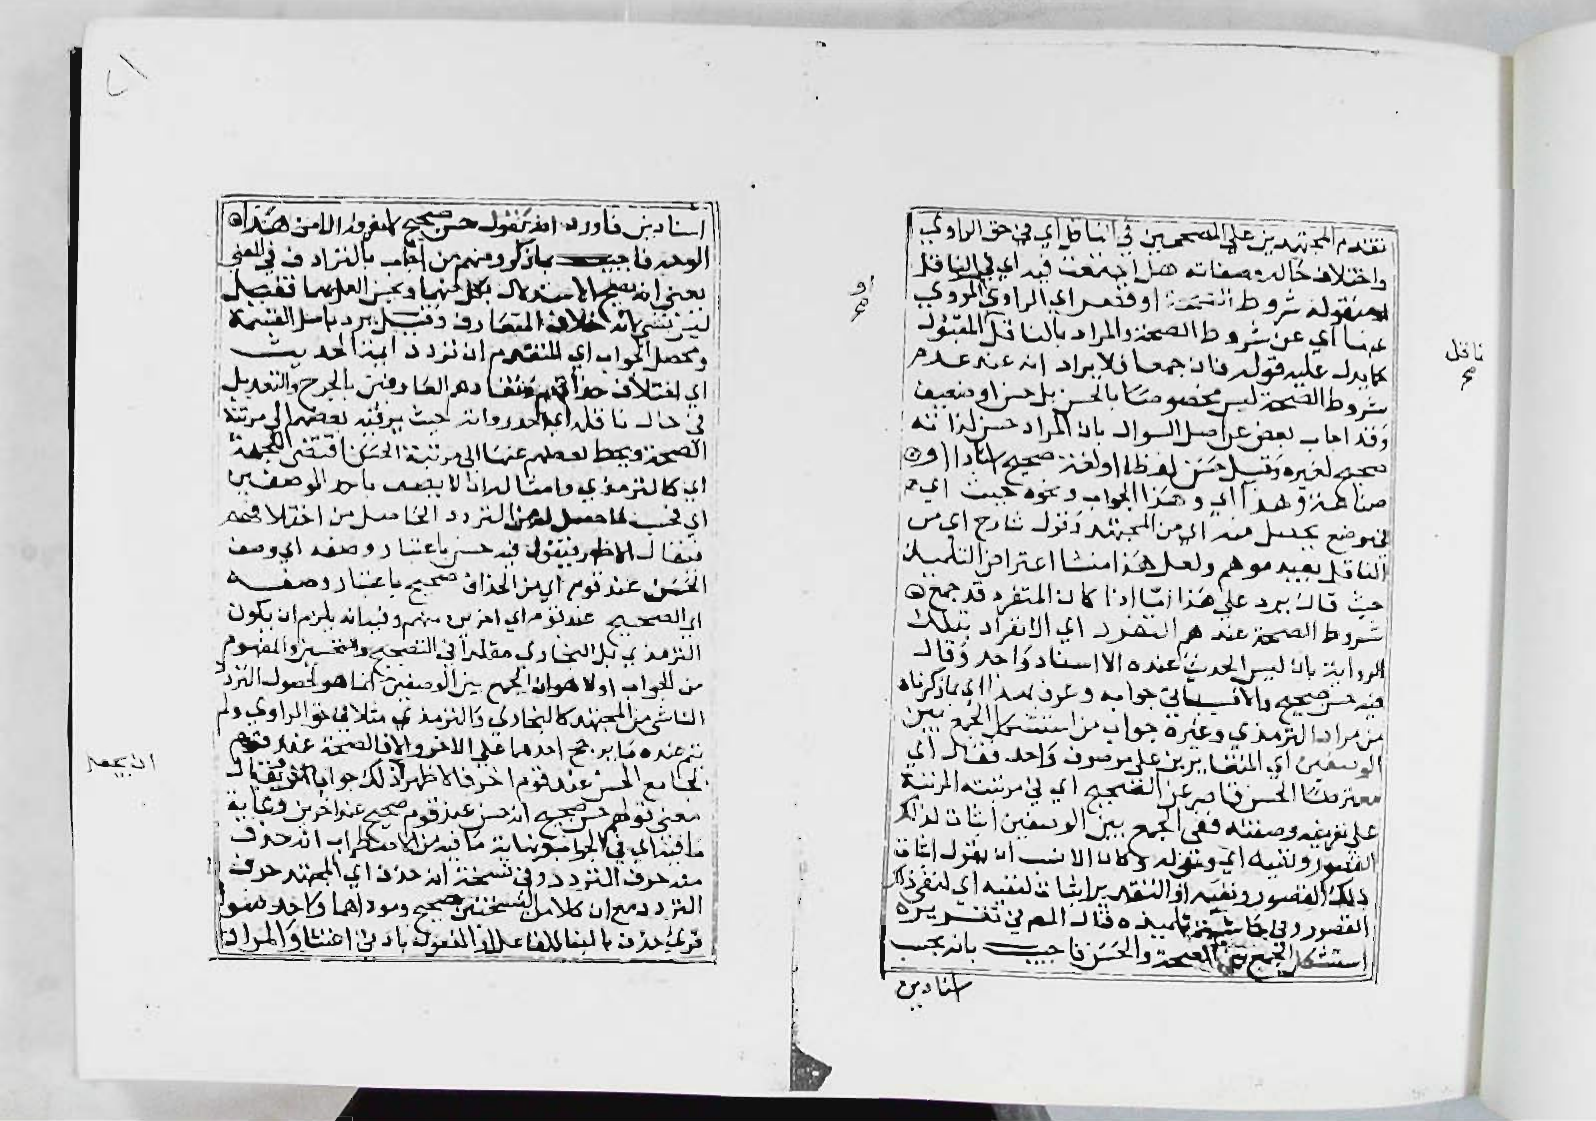 تقدم المجتهدين على المصححين في الناقل اي في حق الراوي
واختلاف حاله وصفاته هل اجتمعت فيه اي في الناقل
شروط الصحة او قصر اي الراوي المروي
عنها اي عن شروط الصحة والمراد بالناقل المقبول
كما يدل عليه قوله فان جمعا فلا يراد انه عند عدم
شروط الصحة ليس مخصوصا بالحسن بل حسن او ضعيف
وقد اجاب بعض عن اصل السوال بان المراد حسن لذاته
صحيح لغيره وقيل حسن لفظا او لغة صحيح اسنادا او
صناعة وهذا اي وهذا الجواب ونحوه حيث اي
في موضع يحصل منه اي من المجتهد وقول شارح اي من
الناقل بعيد موهم ولعل هذا منشا اعتراض التلميذ
حيث قال يرد على هذا ما اذا كان المتفرد قد جمع
شروط الصحة عندهم التفرد اي الانفراد بتلك
الرواية بان ليس الحديث عنده الا اسناد واحد وقال
فيه حسن صحيح والا فسياتي جوابه وعرف بهذا اي بما ذكرناه
من مراد الترمذي وغيره جواب من استشكل الجمع بين
الوصفين اي المتغايرين على موصوف واحد فقال اي
معترضا الحسن قاصر عن الصحيح اي في مرتبته المرتبة
على تعريفه وصفته ففي الجمع بين الوصفين اثبات لذلك
القصور ونفيه اي وبقوله وكان الانسب ان يقول اثبات
ذلك القصور ونفيه او التقدير اثبات لنفيه اي لنفي ذلك
القصور وفي حاشية تلميذه قال المص في تقريره
استشكل الجمع بين الصحة والحسن فاجيب بانه بحسب
اسنادين
او
صح
ناقل
صح
اسنادين فاورد انه يقول حسن صحيح لا نعرفه الا من هذا
الوجه فاجيب بما ذكر ومنهم من اجاب بالترادف في المعنى
يعني انه يصح الاستدلال بكل منهما ويجب العمل بهما فقيل
ليس بشي بانه خلاف المتعارف وقيل يرد باصل القسمة
ومحصل الجواب اي المتقدم ان تردد ايمة الحديث
اي اختلاف حذاقهم ونقادهم العارفين بالجرح والتعديل
في حال ناقله اي احد رواته حيث يرقيه بعضهم الى مرتبة
الصحة ويحط بعضهم عنها الى مرتبة الحسن اقتضى للمجتهد
اي كالترمذي وامثاله ان لا يصفه باحد الوصفين
اي فحسب لما حصل له من التردد الحاصل من اختلافهم
فيقال الاظهر فيقول فيه حسن باعتبار وصفه اي وصف
الحسن عند قوم اي من الحذاق صحيح باعتبار وصفه
اي الصحيح عند قوم اي اخرين منهم وفيه انه يلزم ان يكون
الترمذي بل البخاري مقلدا في التصحيح والتحسين والمفهوم
من الجواب اولا هو ان الجمع بين الوصفين انما هو لحصول التردد
الناشي من المجتهد كالبخاري والترمذي مثلا في حق الراوي ولم
عنده ما يرجح احدهما على الاخر والا فالصحة عند قوم
تجامع الحسن عند قوم اخر فالاظهر
معنى قولهم حسن صحيح انه حسن عند قوم صحيح عند اخرين وغاية
ما فيه اي في الجواب ونهاية ما فيه من الاضطراب انه حذف
منه حرف التردد وفي نسخة انه حذف اي المجتهد حرف
التردد مع ان كلا من النسختين صحيح ومودا هما واحد
قرئ حذف بالبنا للفاعل او المفعول بادنى اعتنا والمراد